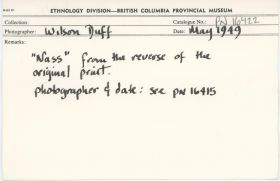 ETHNOLOGY DIVISION—BRITISH COLUMBIA PROVINCIAL MUSEUM
Collection: Catalogue No.: PN 16422
Photographer: Wilson Duff Date: May 1949
Remarks:
"Nass" from the reverse of the
original print.
photographer & date: see PN 16415